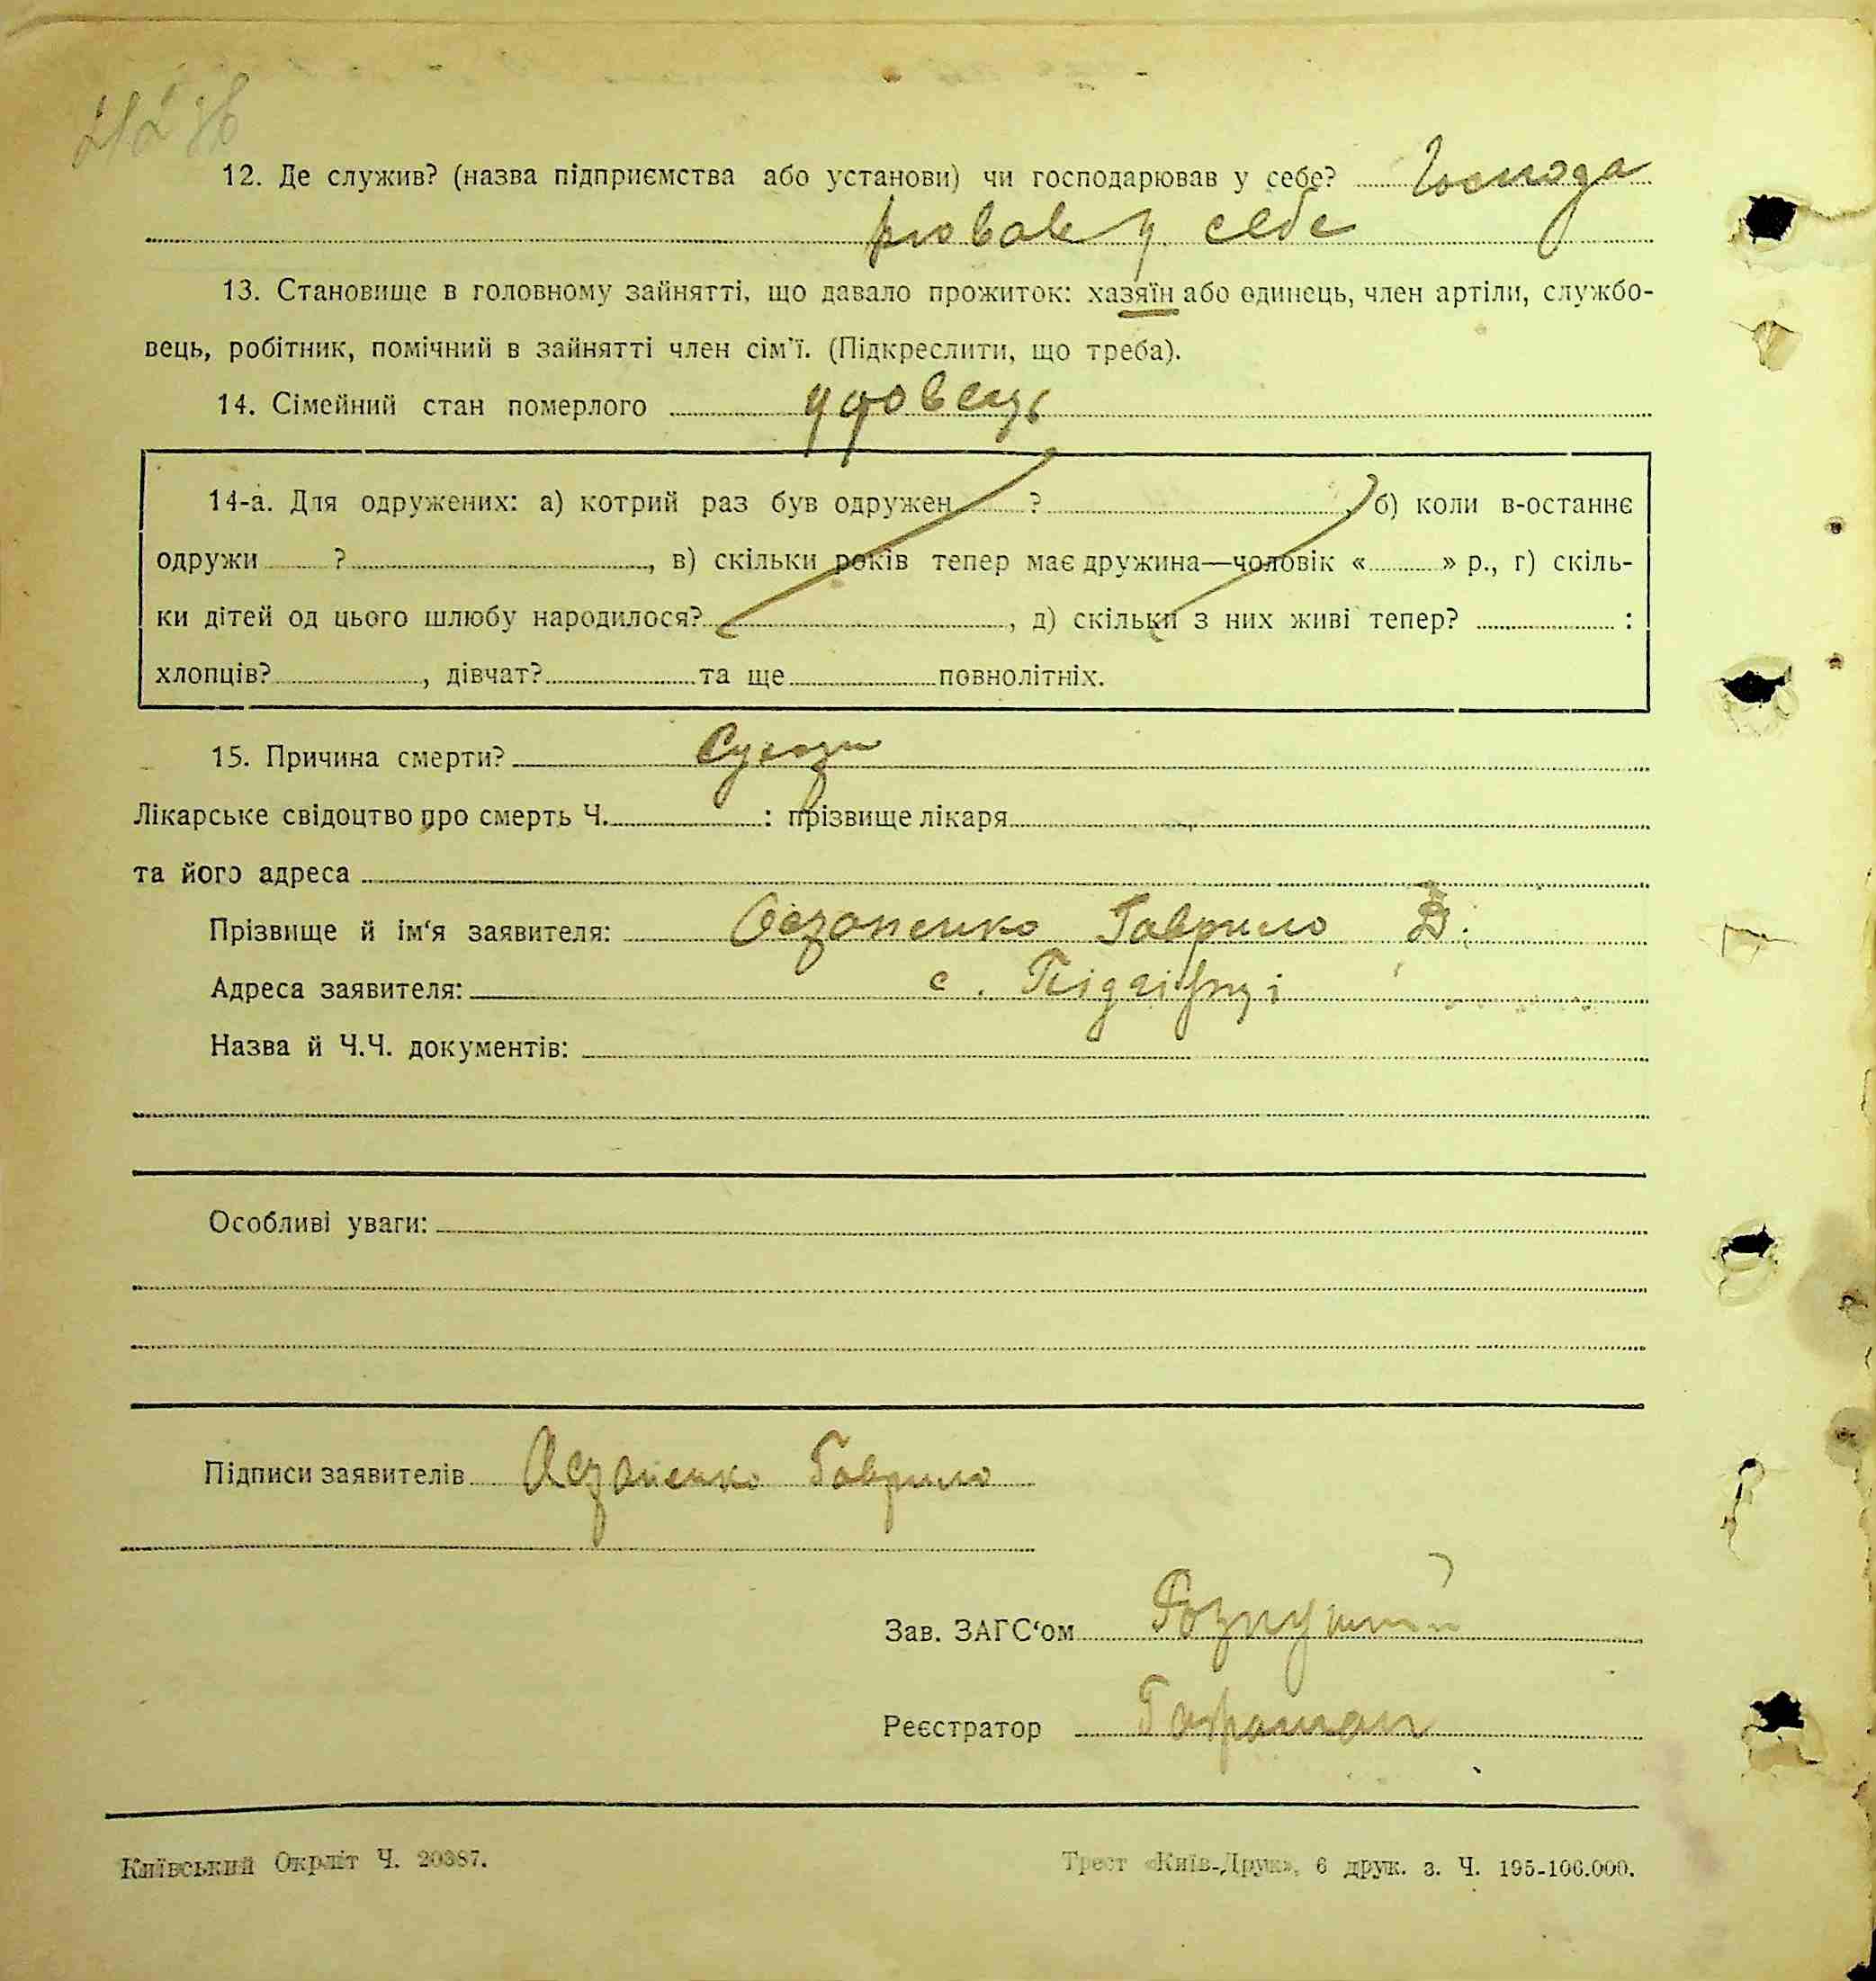 12. Де служив? (назва підприємства або установи) чи господарював у себе? Господа
рював у себе
13. Становище в головному зайнятті, що давало прожиток: хазяїн або одинець, член артіли, службо-
вець, робітник, помічний в зайнятті член сім'ї. (Підкреслити, що треба).
14. Сімейний стан померлого удовець
14-а. Для одружених: а) котрий раз був одружен ? , б) коли в-останнє
одружи ? , в) скільки років тепер має дружина—чоловік « » р., г) скіль-
ки дітей од цього шлюбу народилося? , д) скільки з них живі тепер? :
хлопців? , дівчат? та ще повнолітніх.
15. Причина смерти?
Лікарське свідоцтво про смерть Ч. : прізвище лікаря
та його адреса
Прізвище й ім'я заявителя: Гаврило В.
Адреса заявителя: с.
Назва й Ч.Ч. документів:
Особливі уваги:
Підписи заявителів Гаврило
Зав. ЗАГС'ом
Реєстратор
Київський Окрліт Ч. 20387.
Трест «Київ-Друк», 6 друк. з. Ч. 195-106.000.